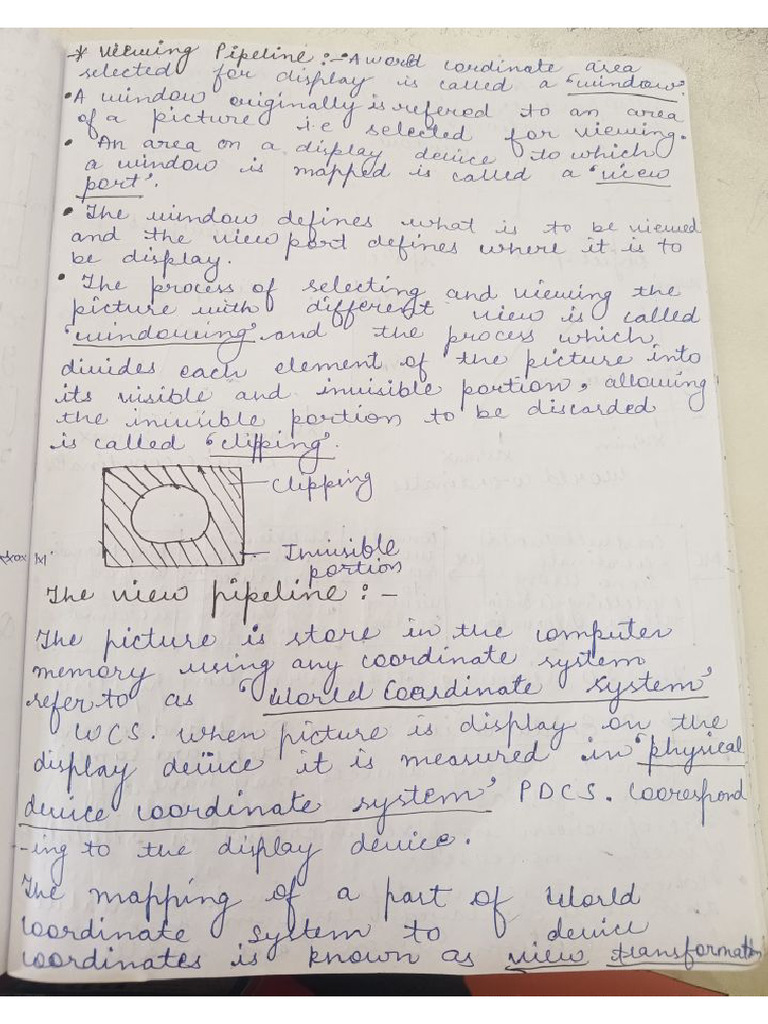 * Viewing Pipeline :- A world cordinate area
selected for display is called a 'window'.
• A window originally is refered to an area
of a picture i.e selected for viewing.
• An area on a display device to which
a window is mapped is called a 'view
port'.
• The window defines what is to be viewed
and the view port defines where it is to
be display.
• The process of selecting and viewing the
picture with different view is called
'windowing' and the process which
divides each element of the picture into
its visible and invisible portion, allowing
the invisible portion to be discarded
is called 'clipping'.
Clipping
Invisible
portion
The view pipeline :-
The picture is store in the computer
memory using any coordinate system
refer to as 'World Coordinate System'
WCS. when picture is display on the
display device it is measured in 'physical
device coordinate system' PDCS. Correspond
-ing to the display device.
The mapping of a part of World
Coordinate System to device
coordinates is known as view transformation